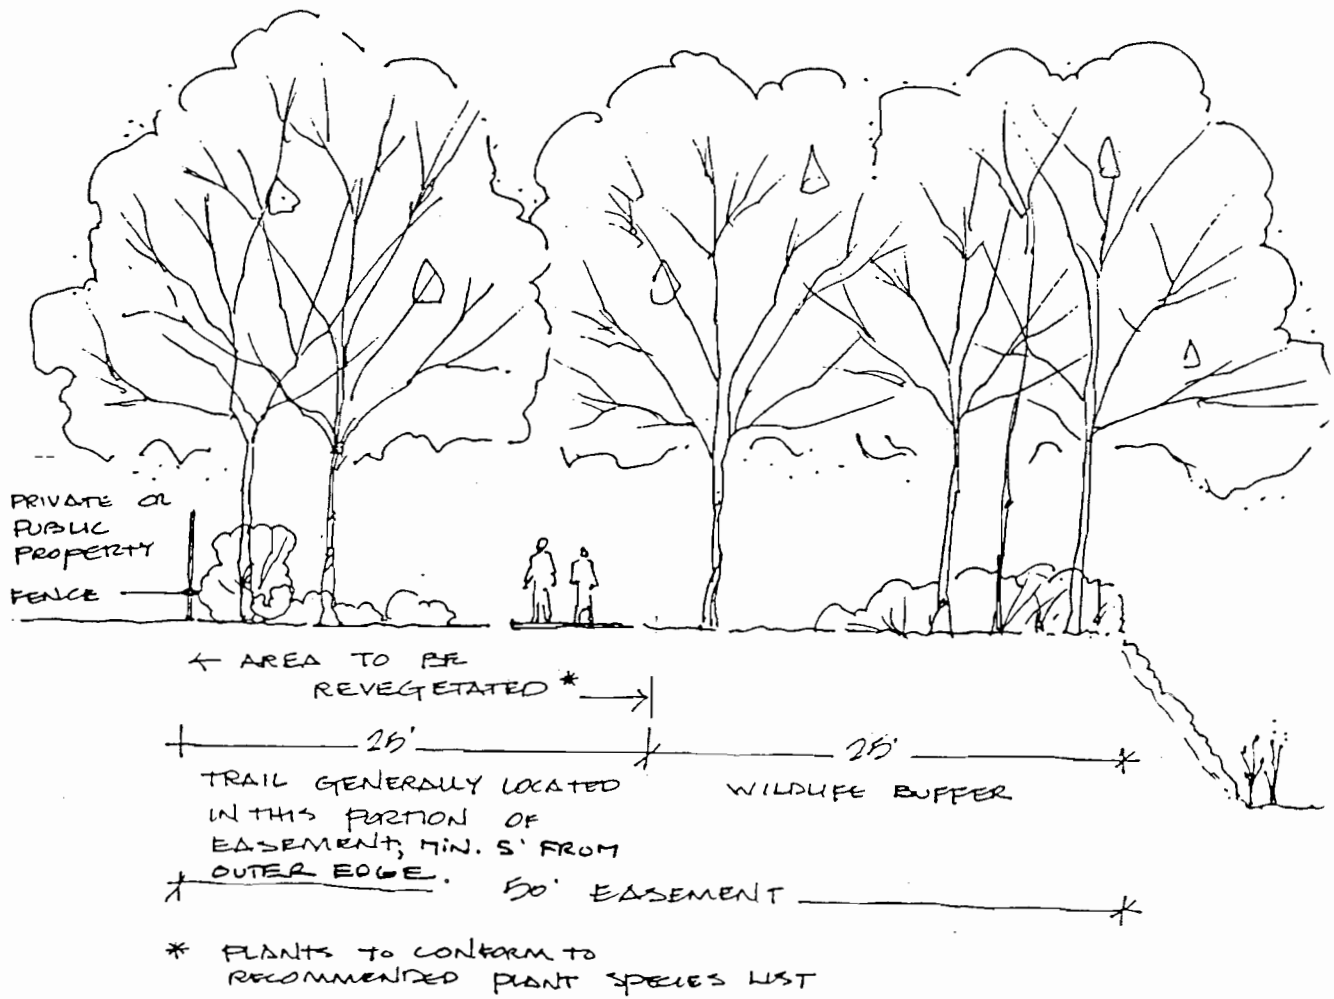 PRIVATE OR
PUBLIC
PROPERTY
FENCE
← AREA TO BE
REVEGETATED *
25'
25'
TRAIL GENERALLY LOCATED
IN THIS PORTION OF
EASEMENT, MIN. 5' FROM
OUTER EDGE.
WILDLIFE BUFFER
50' EASEMENT
* PLANTS TO CONFORM TO
RECOMMENDED PLANT SPECIES LIST